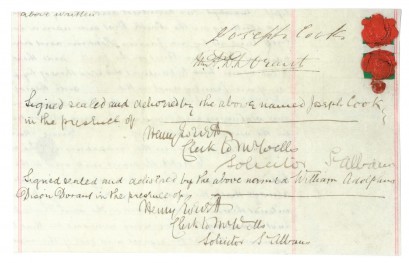 above written
Joseph Cook
Wm
Signed sealed and delivered by the above named Joseph Cook
in the presence of
Henry
Clerk to Mr Wells
Solicitor St Albans
Signed sealed and delivered by the above named William Adolphus
Dixon Dorant in the presence of
Henry
Clerk to Mr Wells
Solicitor St Albans